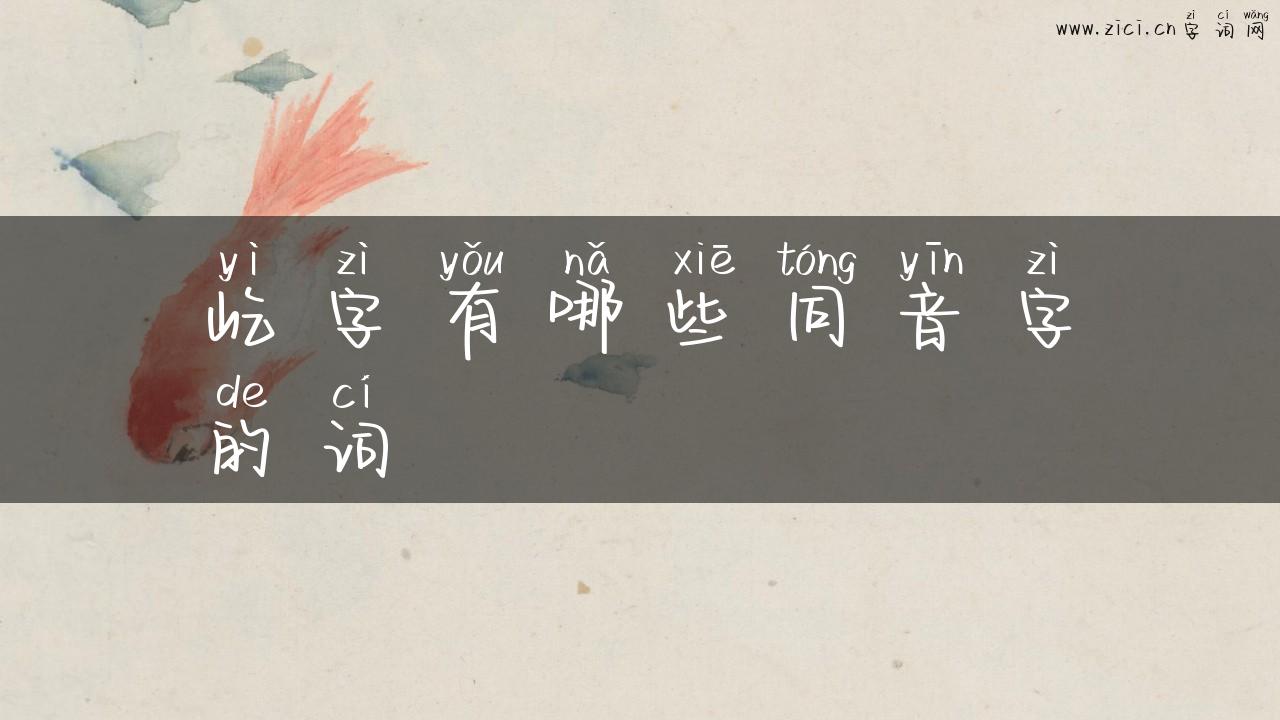 zì cí wǎng
www.zici.cn 字词网
yì zì yǒu nǎ xiē tóng yīn zì
屹字有哪些同音字
de cí
的词